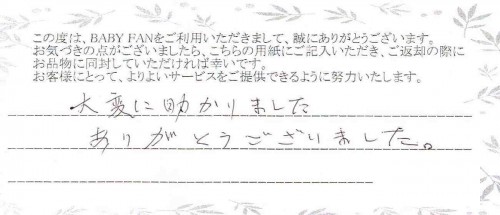 この度は、BABY FANをご利用いただきまして、誠にありがとうございます。
お気づきの点がございましたら、こちらの用紙にご記入いただき、ご返却の際に
お品物に同封していただければ幸いです。
お客様にとって、よりよいサービスをご提供できるように努力いたします。
大変に助かりました
ありがとうございました。